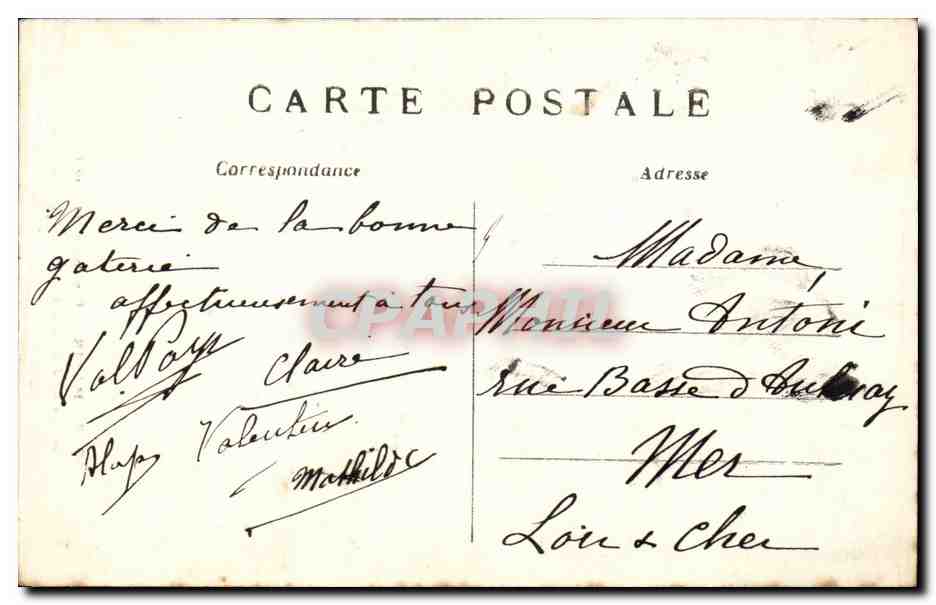 CARTE POSTALE
Correspondance
Adresse
Merci de la bonne
gaterie
affectueusement à tous
Claire
Valentin
Mathilde
Madame,
Monsieur Antoni
rue Basse d'Aulnay
Mer
Loir & Cher
CPAPHIL